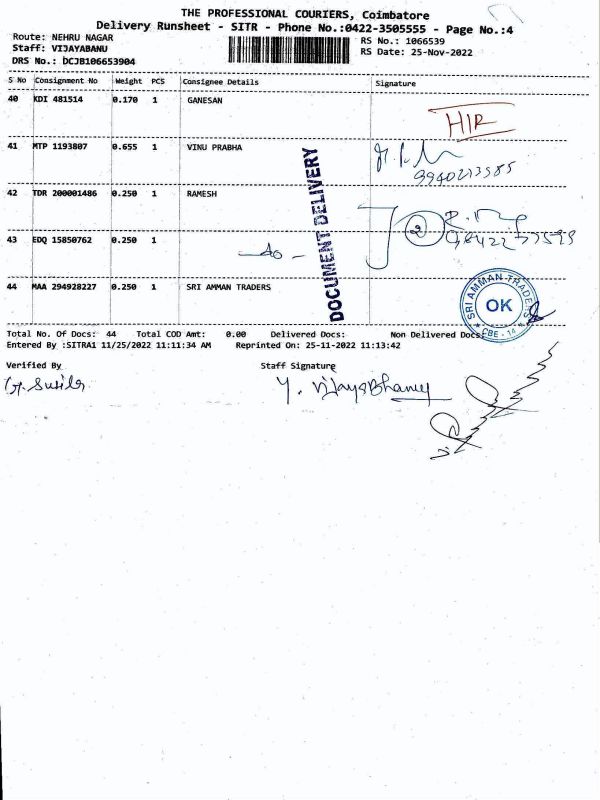 THE PROFESSIONAL COURIERS, Coimbatore
Delivery Runsheet - SITR - Phone No.:0422-3505555 - Page No.:4
Route: NEHRU NAGAR
RS No.: 1066539
Staff: VIJAYABANU
RS Date: 25-Nov-2022
DRS No.: DCJB106653904
S No Consignment No Weight PCS Consignee Details Signature
40 KDI 481514 0.170 1 GANESAN
HIR
41 MTP 1193807 0.655 1 VINU PRABHA
9940213585
42 TDR 200001486 0.250 1 RAMESH
2
43 EDQ 15850762 0.250 1 - do -
44 MAA 294928227 0.250 1 SRI AMMAN TRADERS
DOCUMENT DELIVERY
SRI AMMAN TRADERS
OK
CBE - 14
Total No. Of Docs: 44 Total COD Amt: 0.00 Delivered Docs: Non Delivered Docs:
Entered By :SITRA1 11/25/2022 11:11:34 AM Reprinted On: 25-11-2022 11:13:42
Verified By Staff Signature
Y. VijayaBhanu